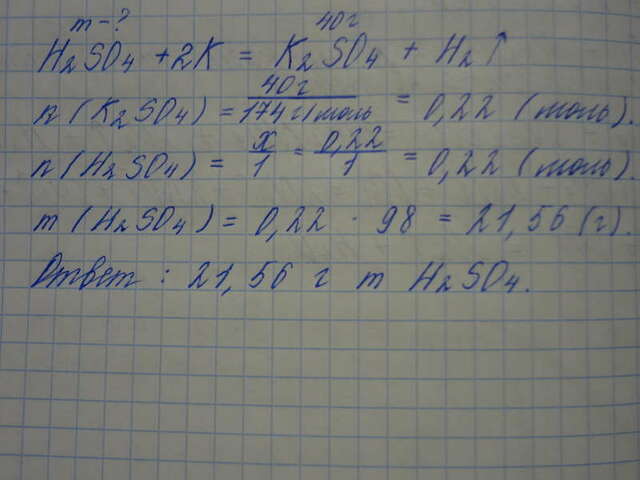 m - ? 40 г
H₂SO₄ + 2K = K₂SO₄ + H₂↑
n (K₂SO₄) = 40 г / 174 г/моль = 0,22 (моль).
n (H₂SO₄) = x/1 = 0,22/1 = 0,22 (моль).
m (H₂SO₄) = 0,22 · 98 = 21,56 (г).
Ответ : 21,56 г m H₂SO₄.